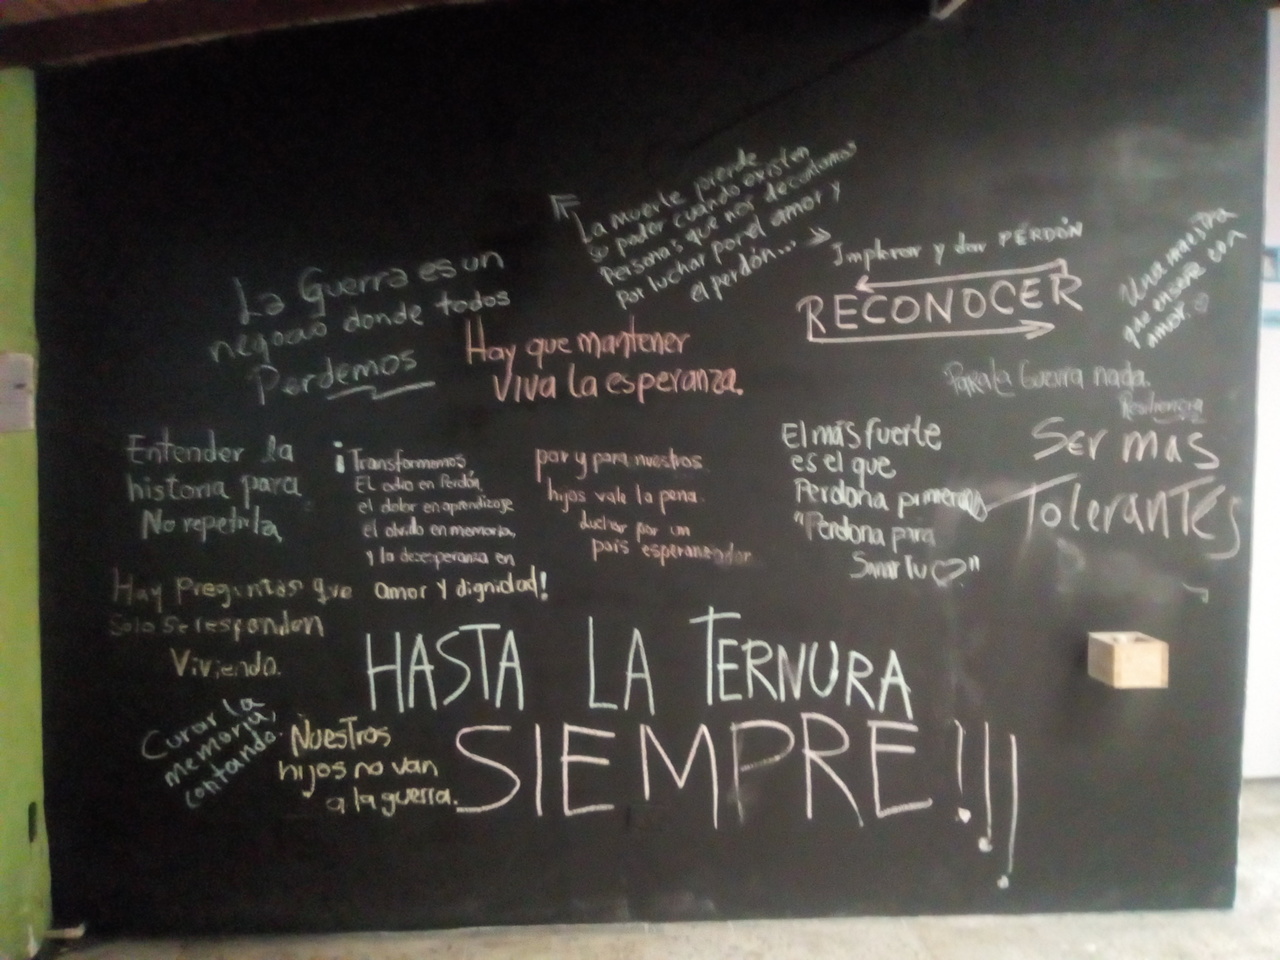 La muerte pierde
su poder cuando existen
Personas que nos decantamos
por luchar por el amor y
el perdón...
Implorar y dar PERDÓN
RECONOCER
Una maestra
que enseñe con
amor.
La Guerra es un
negocio donde todos
Perdemos
Hay que mantener
Viva la esperanza.
Para la Guerra nada.
Resiliencia
Ser mas
Tolerantes
Entender la
historia para
No repetirla
¡Transformemos
El odio en Perdón,
el dolor en aprendizaje
el olvido en memoria,
y la desesperanza en
amor y dignidad!
por y para nuestros
hijos vale la pena
luchar por un
país esperanzador
El más fuerte
es el que
Perdona primero
"Perdona para
Sanar tu ♡"
Hay Preguntas que
Solo se responden
Viviendo.
HASTA LA TERNURA
SIEMPRE!!!
Curar la
memoria,
contando.
Nuestros
hijos no van
a la guerra.